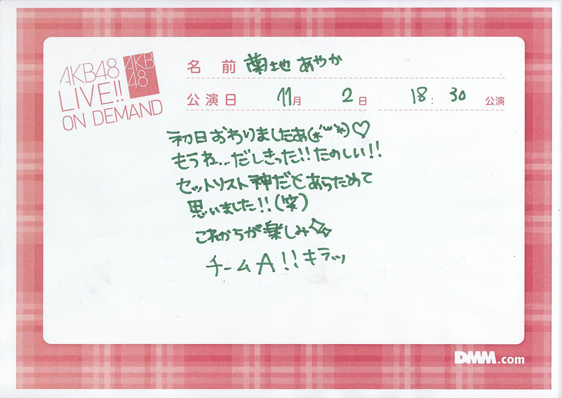 AKB48
LIVE!!
ON DEMAND
AKB
48
名 前 菊地 あやか
公演日 11月 2日 18:30 公演
初日おわりましたあ(*´꒳`*)♡
もうね...だしきった!!たのしい!!
セットリスト神だとあらためて
思いました!!(笑)
これからが楽しみ✧✧
チームA!!キラッ
DMM.com